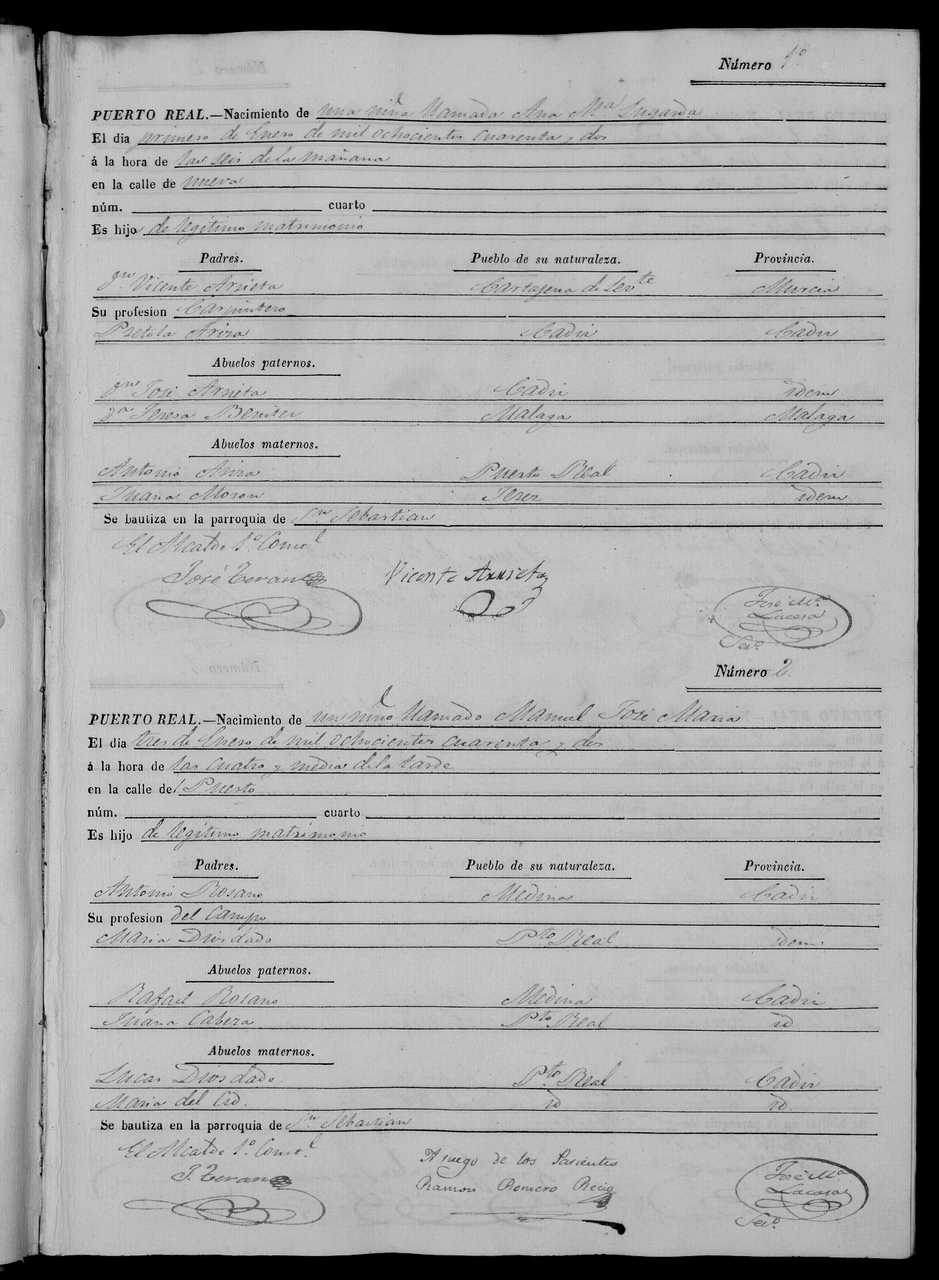 Número 1º
PUERTO REAL.—Nacimiento de una niña llamada Ana Mª Lugarda
El dia primero de Enero de mil ochocientos cuarenta y dos
á la hora de las seis de la mañana
en la calle de nueva
núm. cuarto
Es hijo de legitimo matrimonio
Padres. Pueblo de su naturaleza. Provincia.
Vicente Arrieta Cartagena de Levte Murcia
Su profesion Carpintero
Ariza Cadiz Cadiz
Abuelos paternos.
José Arrieta Cadiz idem
Teresa Benitez Malaga Malaga
Abuelos maternos.
Antonio Ariza Puerto Real Cadiz
Juana Moron Jerez idem
Se bautiza en la parroquia de Sn Sebastian
El Alcalde 1º Conal
José Teran Vicente Arrieta José Mª
Lacasa
Seio
Número 2.
PUERTO REAL.—Nacimiento de un niño llamado Manuel José Maria
El dia tres de Enero de mil ochocientos cuarenta y dos
á la hora de las cuatro y media de la tarde
en la calle del Puerto
núm. cuarto
Es hijo de legitimo matrimonio
Padres. Pueblo de su naturaleza. Provincia.
Antonio Rosano Medina Cadiz
Su profesion del Campo
Maria Diosdado Pto Real idem.
Abuelos paternos.
Rafael Rosano Medina Cadiz
Juana Cabeza Pto Real id
Abuelos maternos.
Lucas Diosdado Pto Real Cadiz
Maria del Cid. id id.
Se bautiza en la parroquia de Sn Sebastian
El Alcalde 1º Conal
J. Teran A ruego de los Parientes José Mª
Ramon Romero Recio Lacasa
Seio